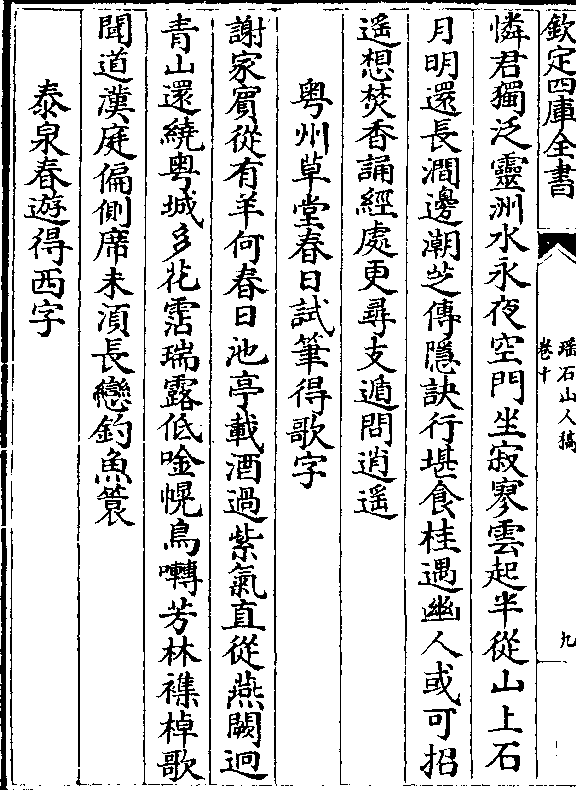 欽定四庫全書
瑶石山人稿
卷十
九
憐君獨泛靈洲水永夜空門坐寂寥雲起半從山上石
月明還長澗邊潮芝傳隱訣行堪食桂遇幽人或可招
遥想焚香誦經處更尋支遁問逍遥
粤州草堂春日試筆得歌字
謝家賓從有羊何春日池亭載酒過紫氣直從燕闕迥
青山還繞粤城多花霑瑞露低唫幌鳥囀芳林襍棹歌
聞道漢庭偏側席未須長戀釣魚簑
泰泉春遊得西字